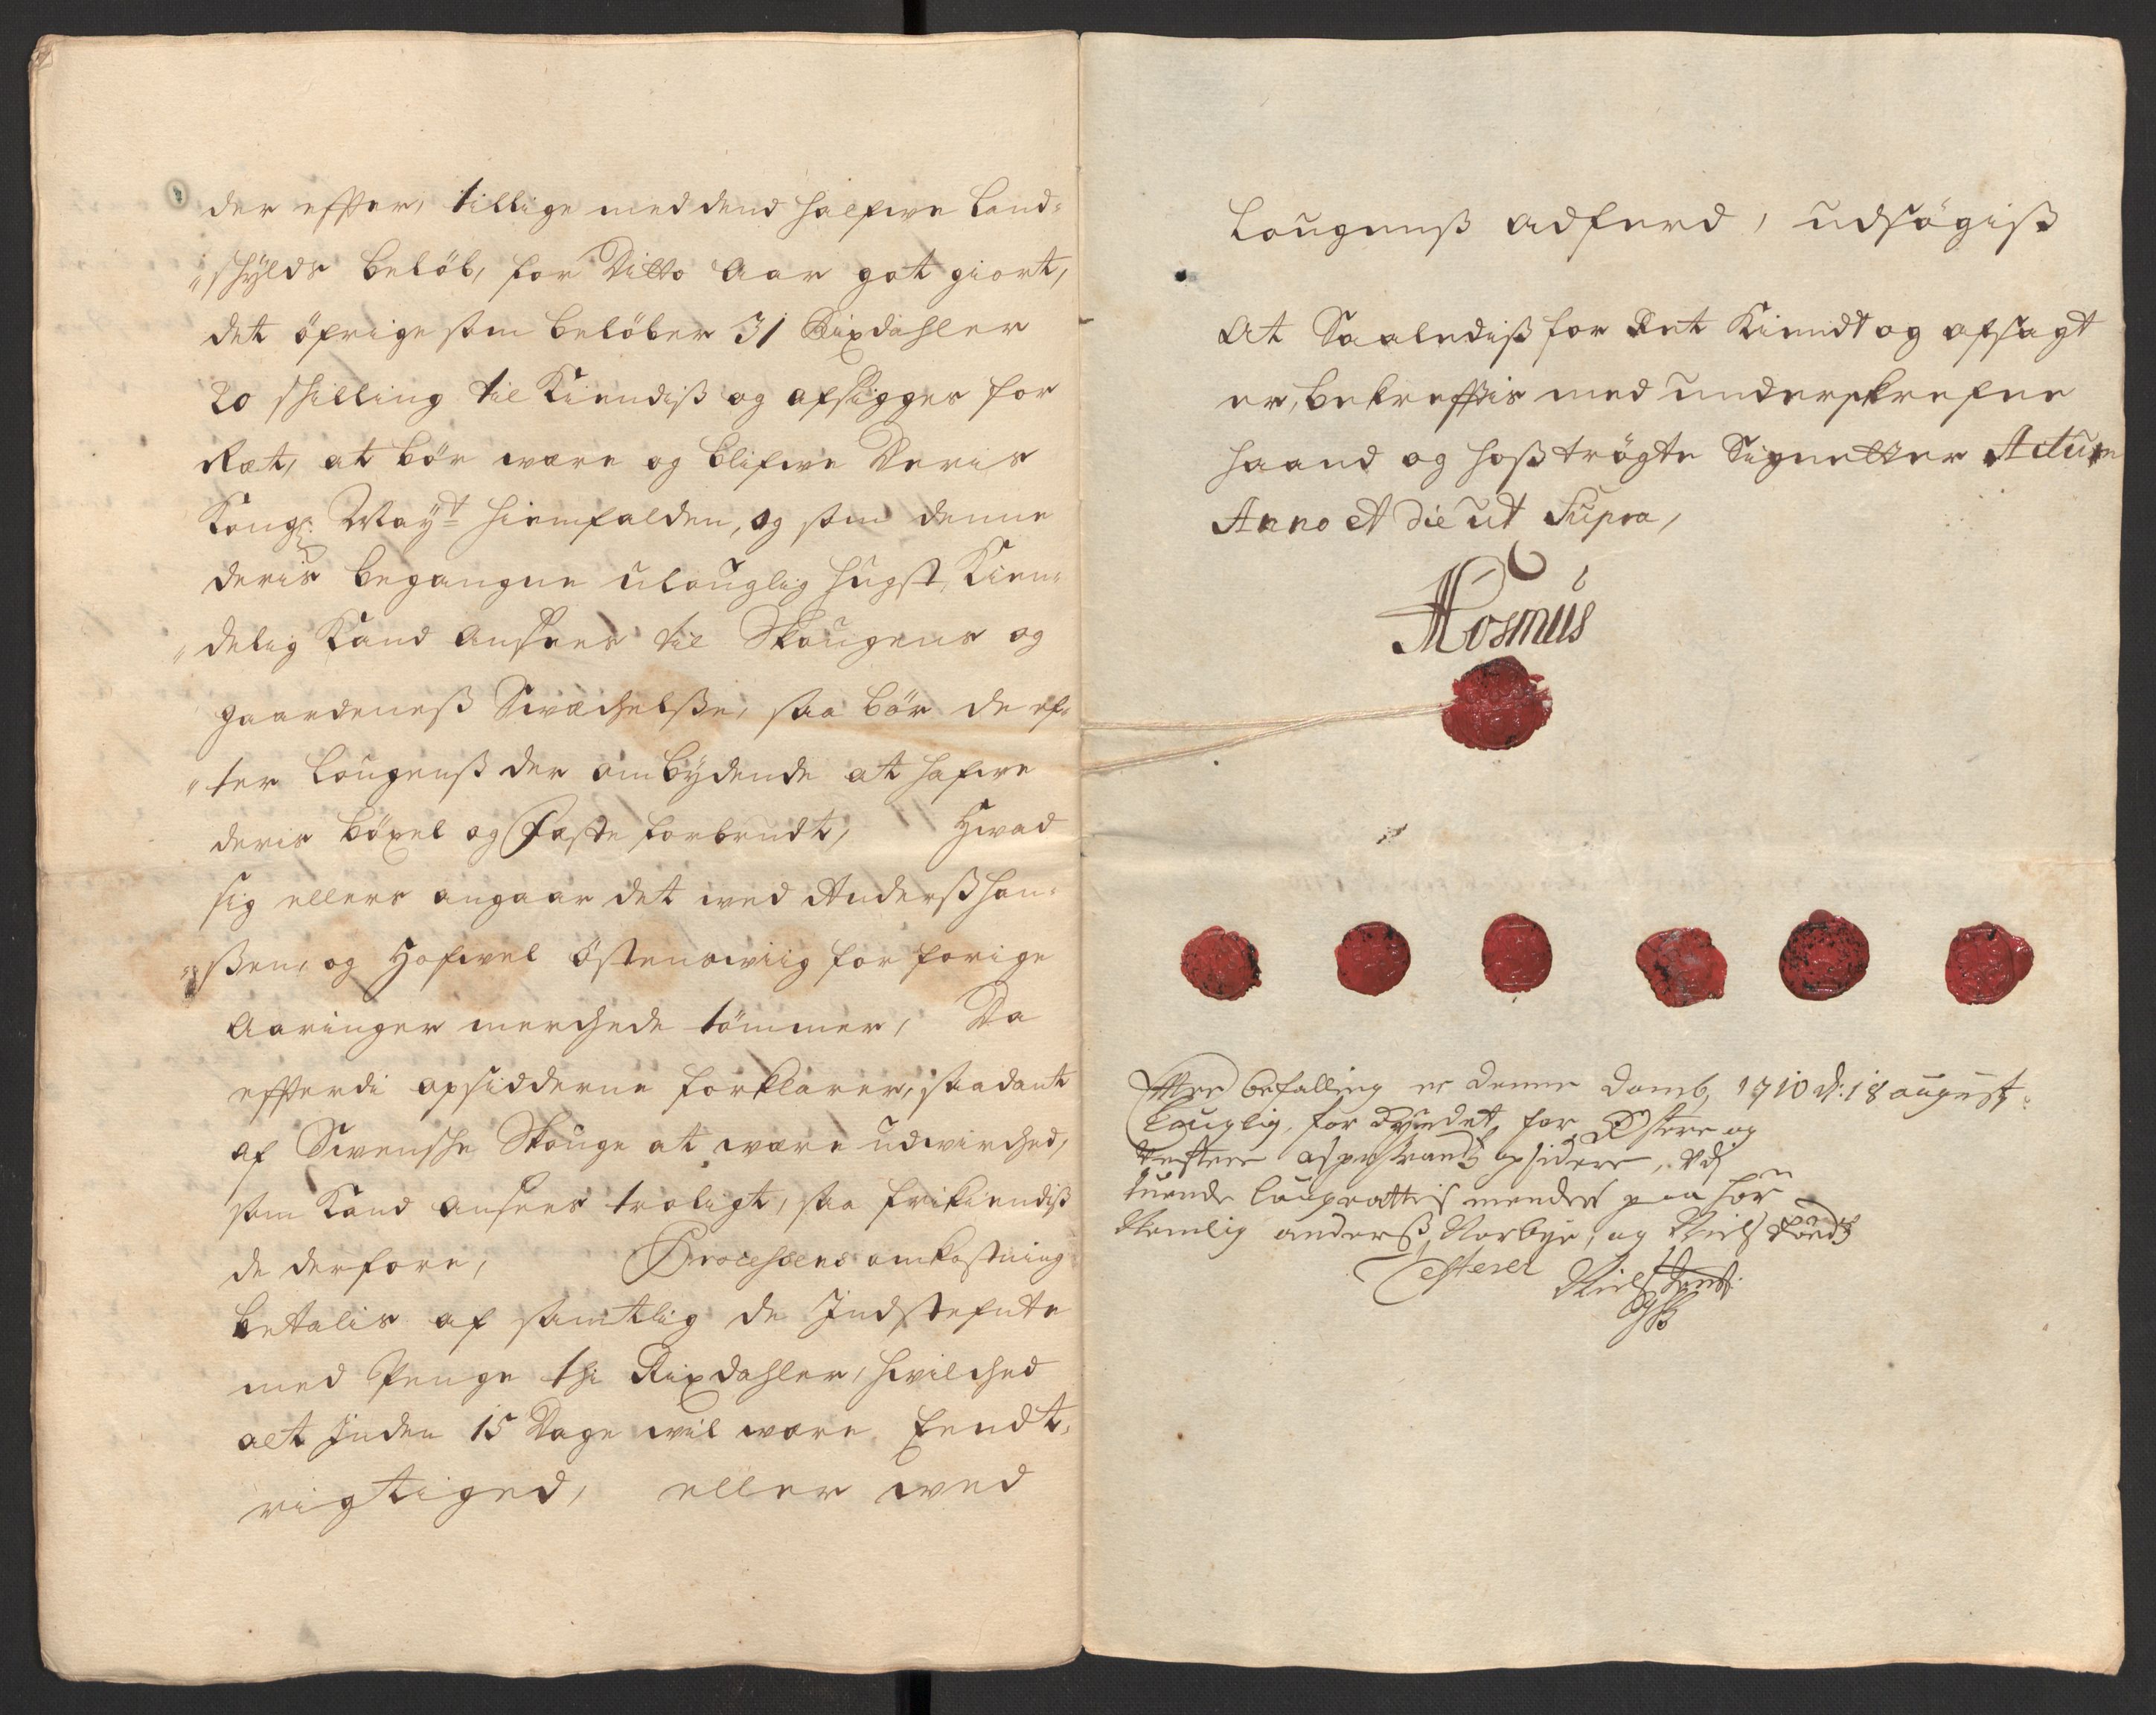 der effter, tillige med dend halfwe Land-
"shylds beløb, for Ditto Aar got giort,
det öfrige som beløber 31 Rixdahler
20 shilling til Kiendiß og afsigges for
Ræt, at bör være og blifwe Deris
Kongl: Mayt hiemfalden, og som denne
deris begangne ulouglig hugst, Kien-
"delig Kand ansees til Skougens og
gaardeneß Swæchelße, saa bör de ef-
"ter Lougenß der ombydende at hafwe
deris böxel og Fæste forbrudt, Hwad
sig ellers angaar det wed Anderß Han-
"ßen, og Hafwel Östenswiig for forige
Aaringer merchede tömmer, Da
effterdi opsidderne forklarer, saadant
af Swenshe Skouge at være udwirched,
som Kand ansees troligt, saa frikiendiß
de derfore, Processens omkostning
betalis af samtlig de Indstefnte
med Penge thi Rixdahler, hwilched
alt Inden 15 Dage wil være Eendt,
rigtiged, eller wed
Lougenß adferd, udsögiß
At Saalediß for Ret Kiendt og afsagt
er, bekreffter med underskrefne
haand og hoß trögte Signetter Actum
Anno et die ut Supra,
Hosmus
Effter befalling er denne Domb, 1710 d: 18 august
Louglig, for Kyndet, for Östere og
Vestere opsidere, Ved
tuende Laugrættis mender paa hör
Nemlig anderß Norbye, og Niels
Testerer Niels